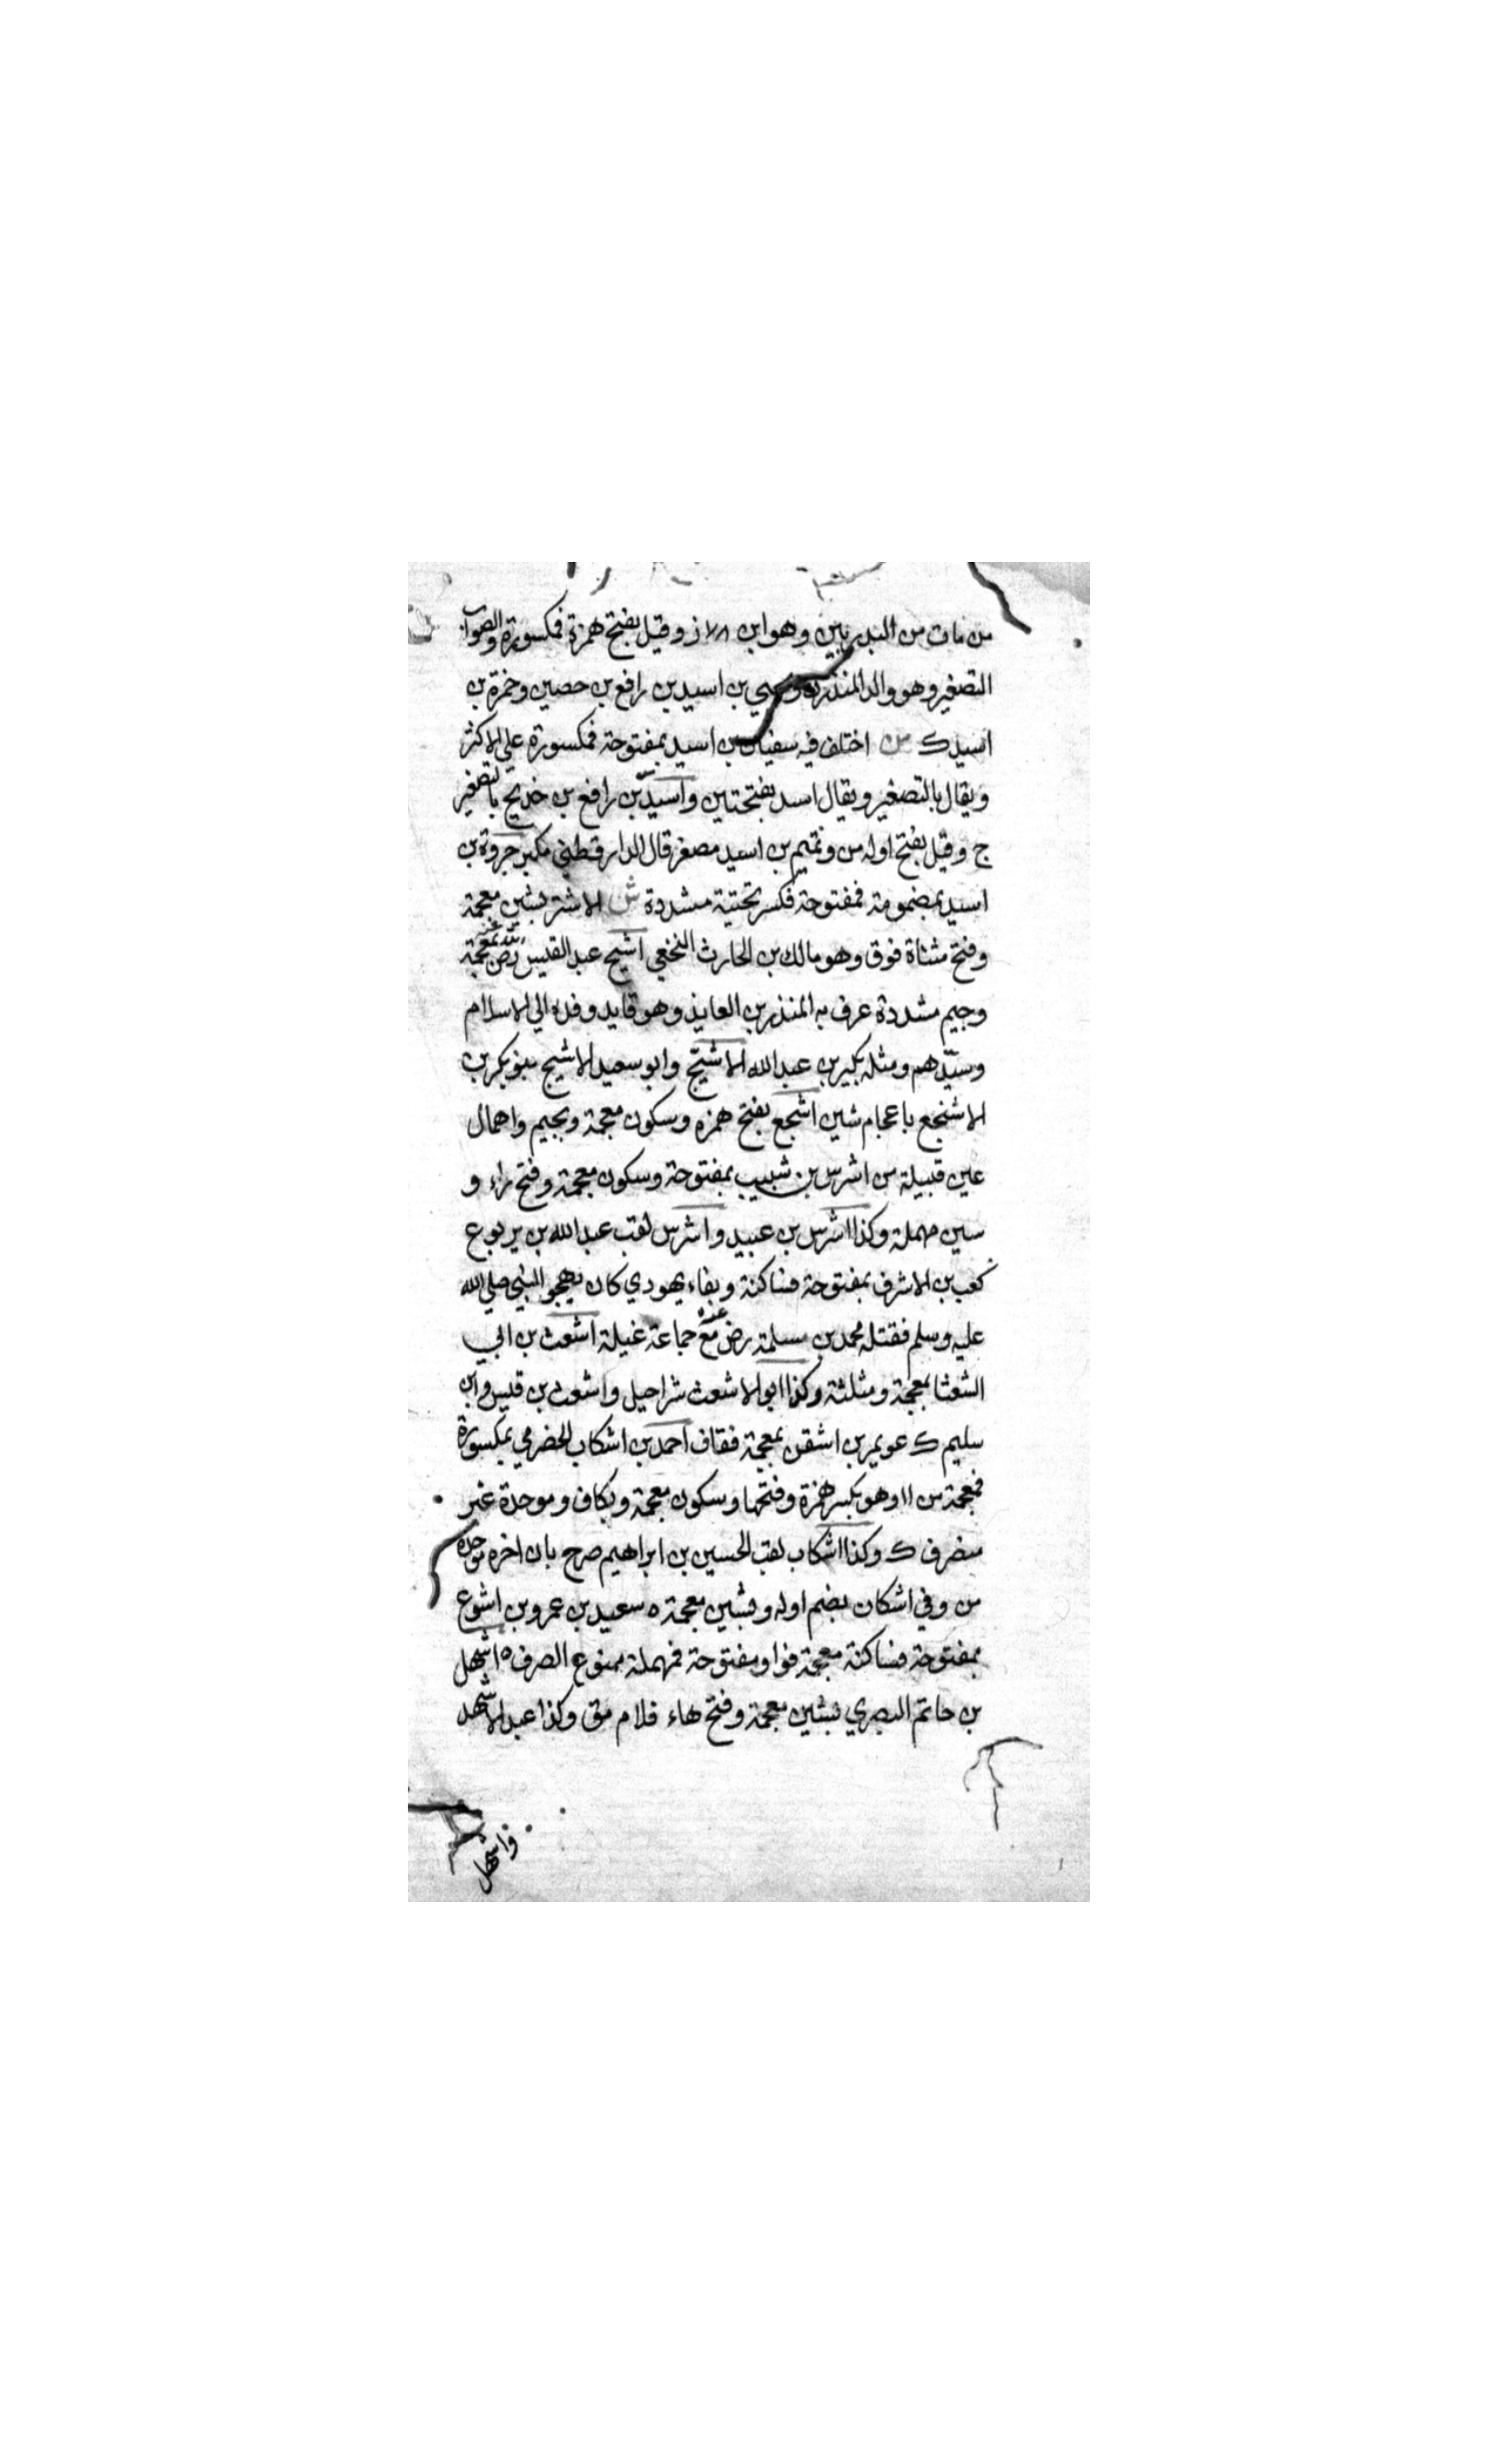 من مات من البدريين وهو ابن ٧٨ ز وقيل بفتح همزة فمكسورة والصواب
التصغير وهو والد المنذر ويحيي بن اسيد بن رافع بن حصين وحمزة بن
اسيد ك من اختلف فيه سفيان بن اسيد بمفتوحة فمكسورة علي الاكثر
ويقال بالتصغير ويقال اسد بفتحتين واسيد بن رافع بن خديج بالتصغير
ج وقيل بفتح اوله من وتميم بن اسيد مصغر قال الدارقطني مكبر جروة بن
اسيد بمضمومة فمفتوحة فكسر تحتية مشددة ش الاشتر بشين معجمة
وفتح مثناة فوق وهو مالك بن الحارث النخعي اشج عبد القيس رض بمعجمة
وجيم مشددة عرف به المنذر بن العايذ وهو قايد وفده الي الاسلام
وسيدهم ومثله بكير بن عبد الله الاشج وابو سعيد الاشج بنو بكر بن
الاشجع باعجام شين اشجع بفتح همزه وسكون معجمة وبجيم واهمال
عين قبيلة من اشرس بن شبيب بمفتوحة وسكون معجمة وفتح راء و
سين مهملة وكذا اشرس بن عبيد واشرس لقب عبد الله بن يربوع
كعب بن الاشرف بمفتوحة فساكنة وبفاء يهودي كان يهجو النبي صلي الله
عليه وسلم فقتله محمد بن مسلمة رض عنه مع جماعة غيلة اشعث بن ابي
الشعثا بمعجمة ومثلثة وكذا ابو الاشعث شراحيل واشعث بن قيس وابن
سليم ك عويمر بن اشقر بمعجمة فقاف احمد بن اشكاب الحضرمي بمكسورة
فمعجمة من ١١ وهو بكسر همزة وفتحها وسكون معجمة وبكاف وموحدة غير
منصرف ك وكذا اشكاب لقب الحسين بن ابراهيم صرح بان اخره موحدة
من وفي اشكان بضم اوله وبشين معجمة ه سعيد بن عمرو بن اشوع
بمفتوحة فساكنة معجمة فواو مفتوحة فمهملة ممنوع الصرف ه اشهل
بن حاتم البصري بشين معجمة وفتح هاء فلام مق وكذا عبد الاشهل
واشهل